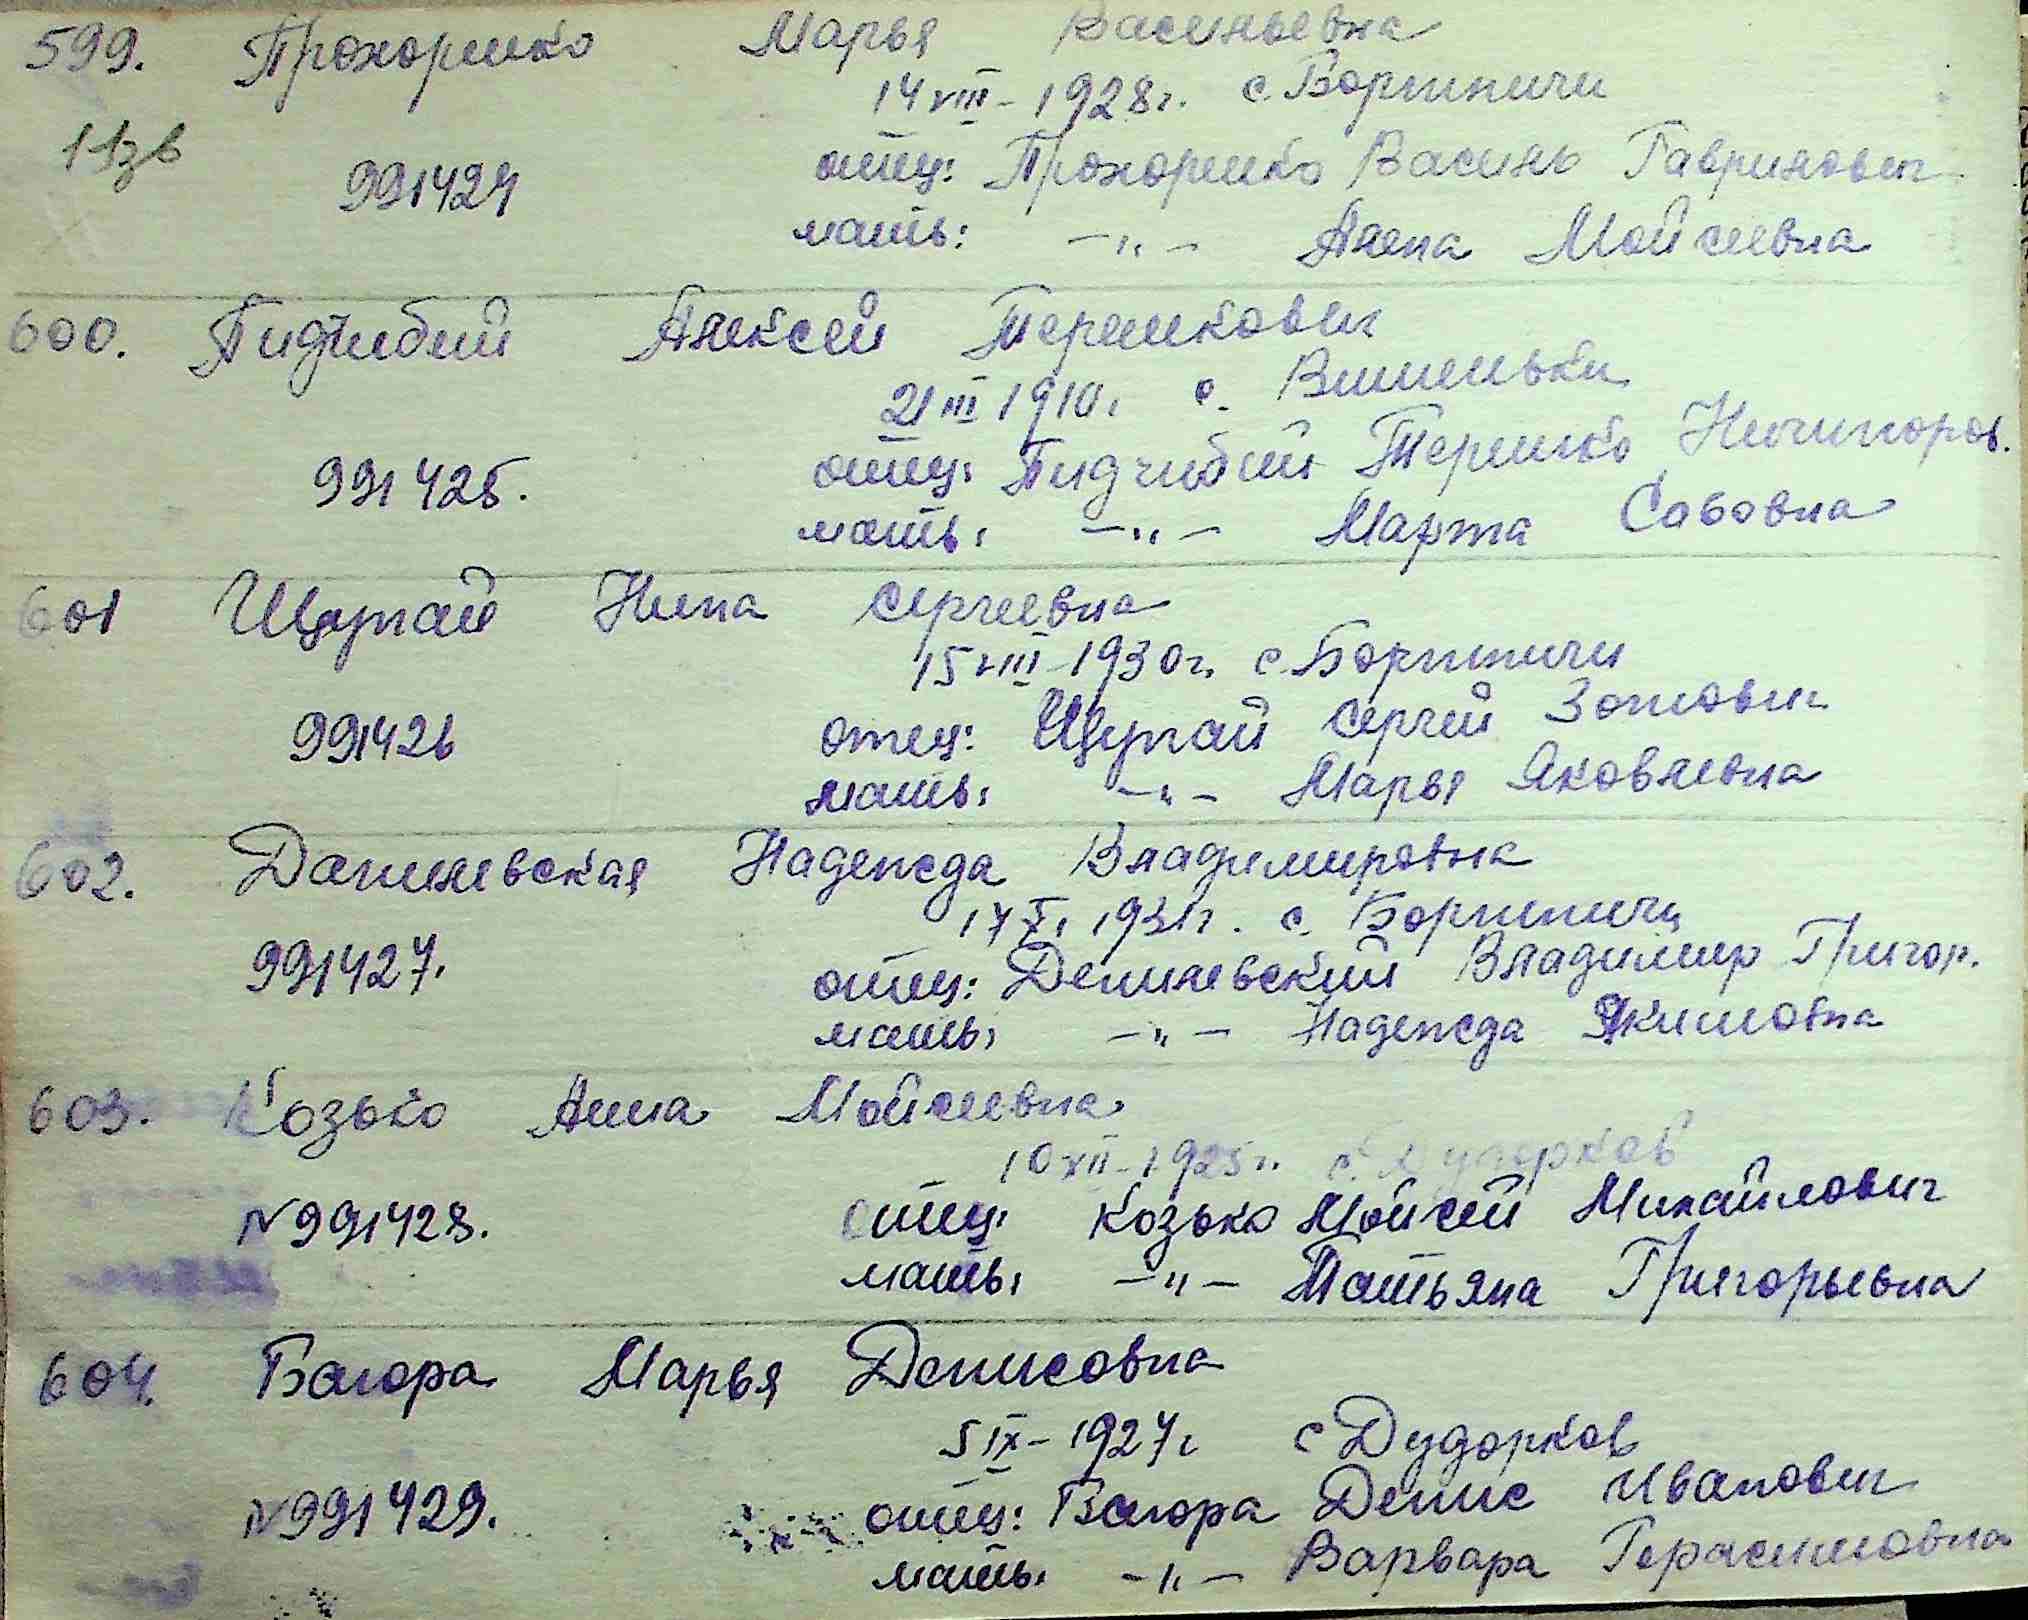 599. Прохоренко Марья Васильевна
14 VIII - 1928г. с. Бортничи
11зв
991424
отец: Прохоренко Василь Гаврилович
мать: -"- Анна Мойсеевна
600. Пидчибий Алексей Терешкович
21 III 1910г. с. Вишеньки
991425.
отец: Пидчибий Терешко Ничипоров.
мать: -"- Марта Савовна
601 Щупай Нина Сергеевна
15 VIII - 1930г. с. Бортничи
991426
отец: Щупай Сергей Зотович
мать: -"- Марья Яковлевна
602. Данилевская Надежда Владимировна
17 X. 1931г. с. Бортничи
991427.
отец: Данилевский Владимир Григор.
мать: -"- Надежда Якимовна
603. Козько Анна Мойсеевна
10 XII - 1925г. с. Дударков
N 991428.
отец: Козько Мойсей Михайлович
мать: -"- Татьяна Григорьевна
604. Марья Денисовна
5 IX - 1927г с Дударков
N 991429.
отец: Денис Иванович
мать: -"- Варвара Герасимовна